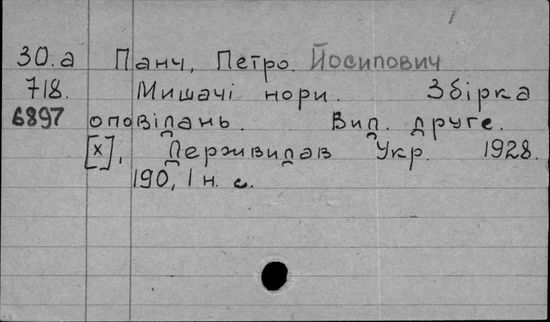 30.а Панч, Петро. Йосипович
718. Мишачі нори. Збірка
6897 оповідань. Вид. друге.
[х], Держвидав Укр. 1928.
190, 1 н. с.